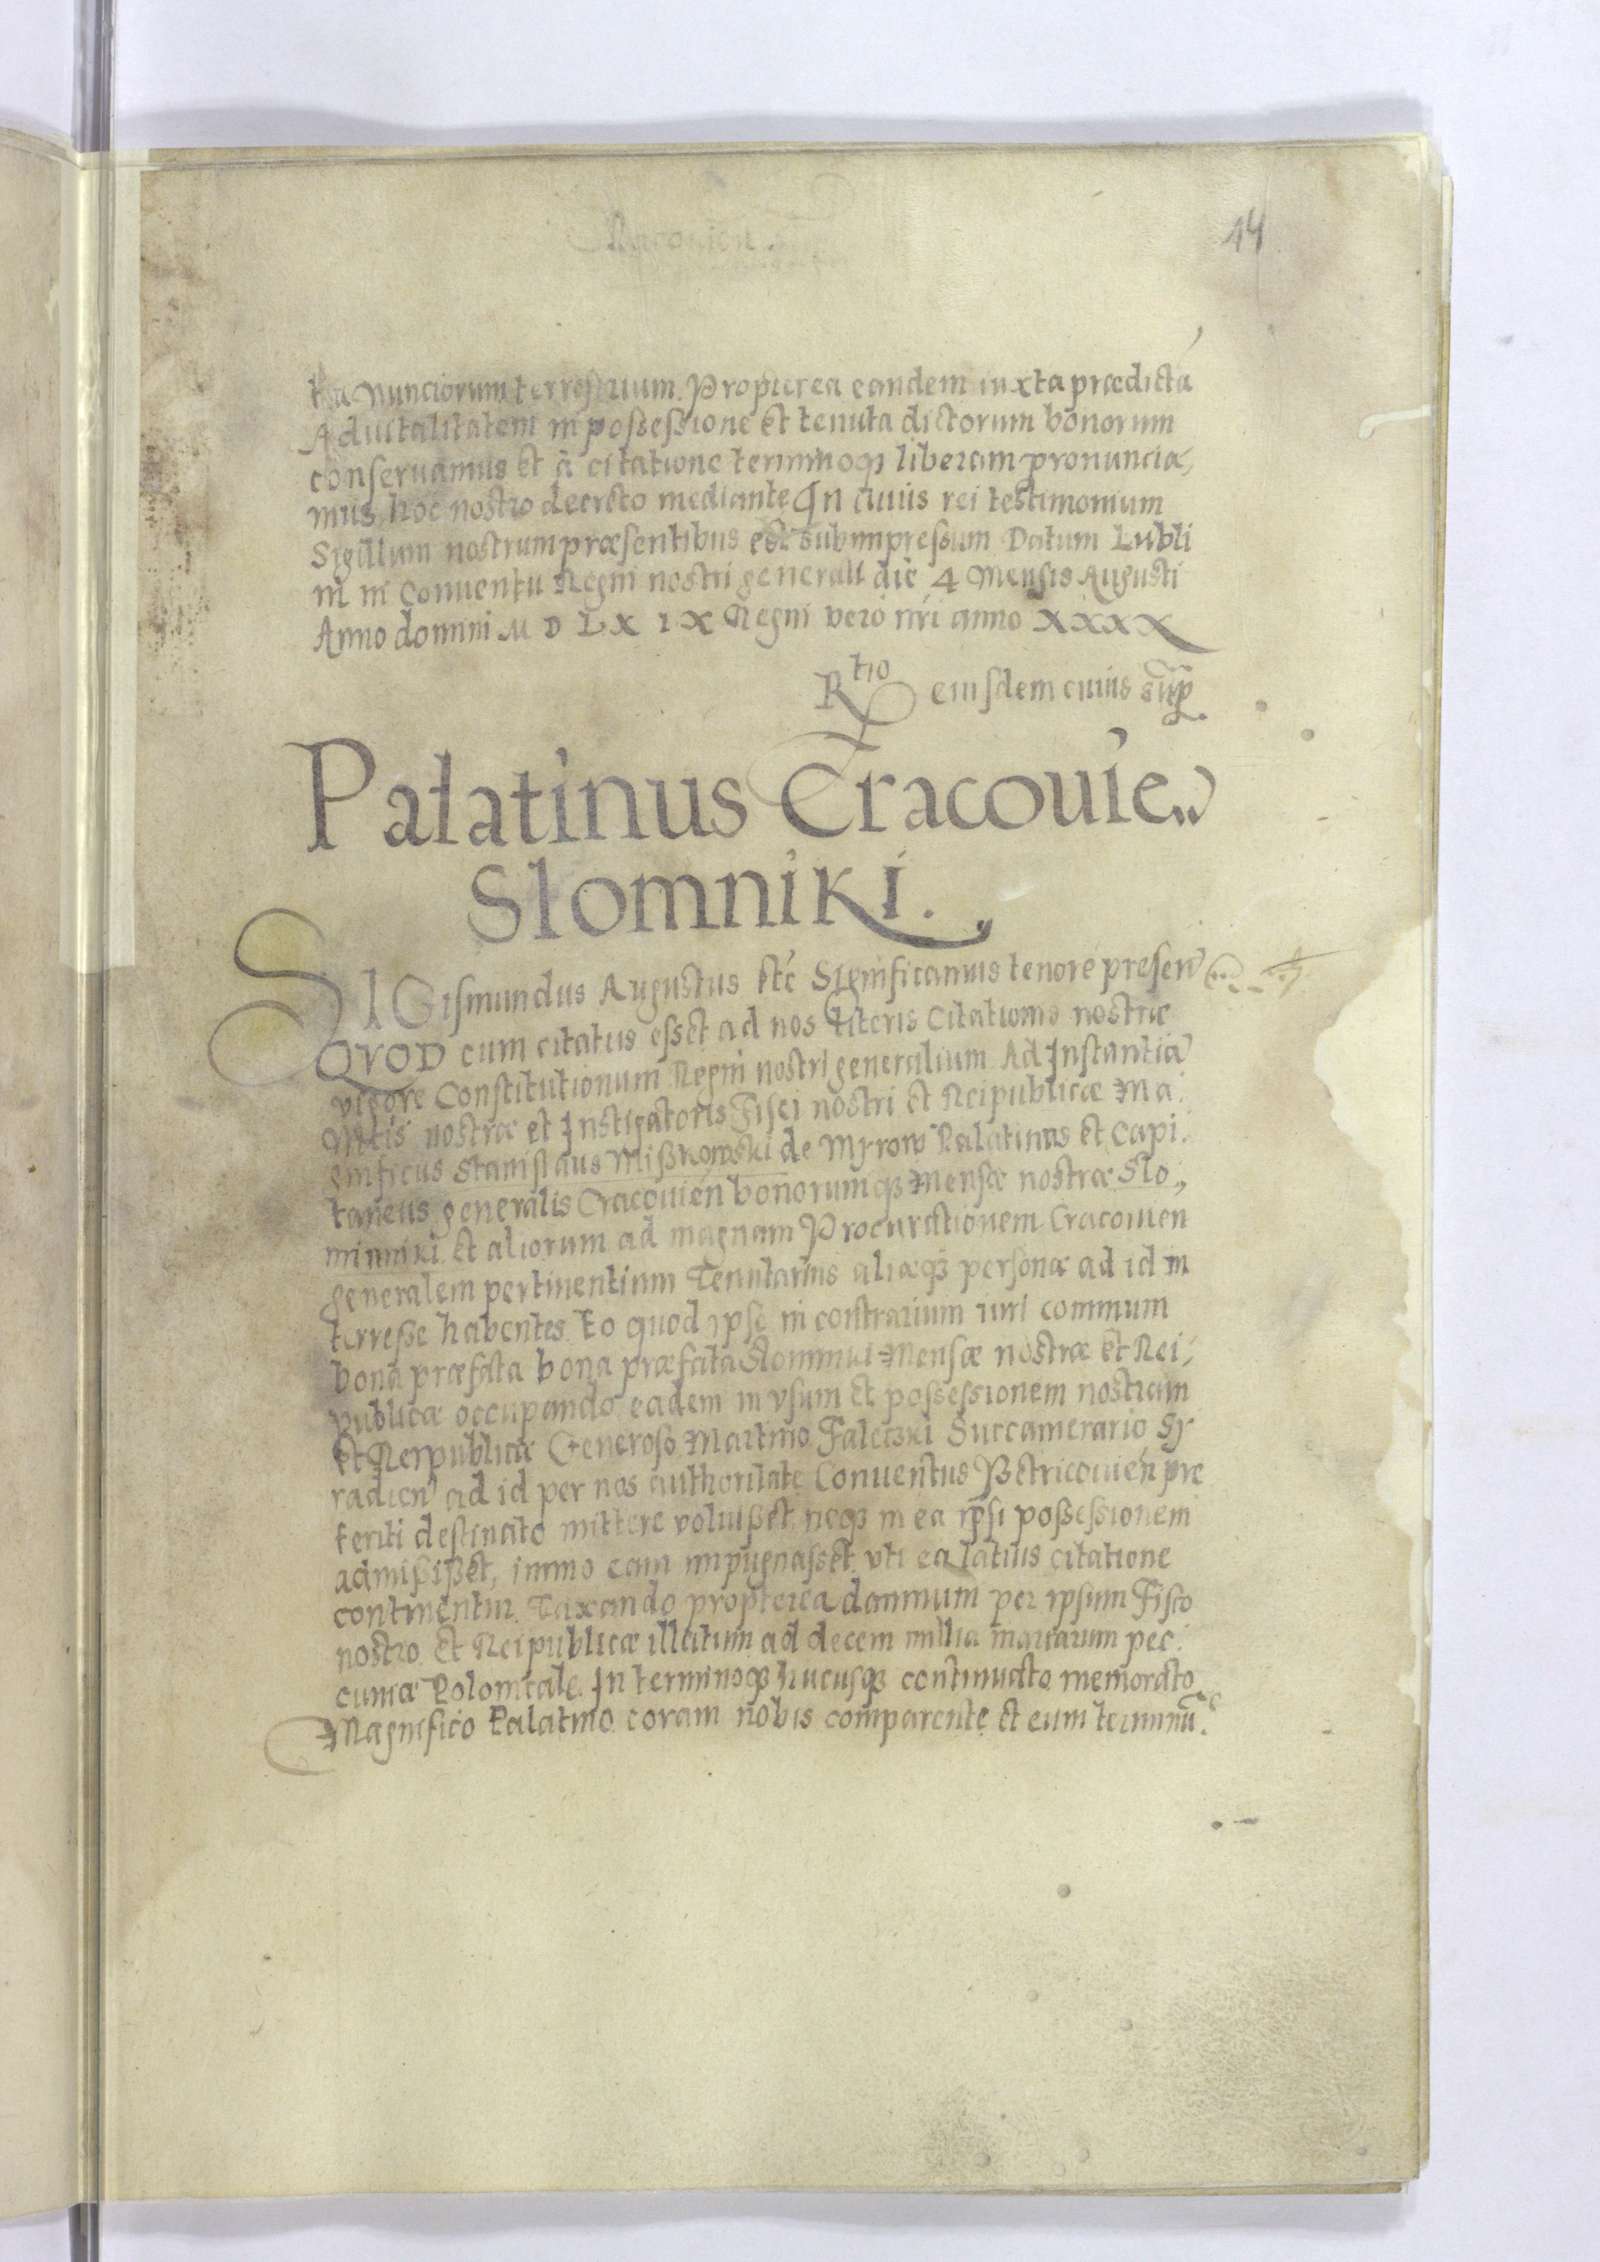 Cracouien
14
Nunciorum terrestrium. Propterea eandem iuxta prædictã
Aduitalitatem in possessione et tenuta dictorum bonorum
conseruamus et à citatione terminoq3 liberam pronuncia,
mus hoc nostro decreto mediante In cuius rei testimonium
Sigillum nostrum præsentibus est subimpressum Datum Lubli
ni in Conuentu Regni nostri generali die 4 Mensis Augusti
Anno domini M D L X I X Regni vero nri anno XXXX
Rtio eiusdem cuius sup
Palatinus Cracouień
Slomniki.
SIGismundus Augustus etc Significamus tenore presen
QVOD cum citatus esset ad nos literis Citationis nostræ
vigore Constitutionum Regni nostri generalium Ad Instantiã
Mtis nostræ et Instigatoris Fisci nostri et Reipublicæ Ma
gnificus Stanislaus Mißkowski de Myrow Palatinus et Capi.
taneus generalis Cracouien bonorumq3 Mensæ nostræ Slo,,
mniki et aliorum ad magnam Procurationem Cracouien
generalem pertinentium Tenutarius aliæq3 personæ ad id in
terreße habentes. Eo quod ipse in contrarium iuri communi
bona præfata bona præfata Slomniki Mensæ nostræ et Rei,
publicæ occupando eadem in vsum et possessionem nostram
et Reipublicæ Generoso Martino Faleczki Succamerario Sy
radien ad id per nos authoritate Conuentus Petricouień pre
teriti destinato mittere voluißet neq3 in ea ipsi poßessionem
admisißet, immo eam impugnasset vti ea latius citatione
continentur. Taxando propterea damnum per ipsum Fisco
nostro et Reipublicæ illatum ad decem millia marcarum pec.
cuniæ Polonicale. In terminoq3 hucusq3 continuato memorato
Magnifico Palatino coram nobis comparente et eum terminũ